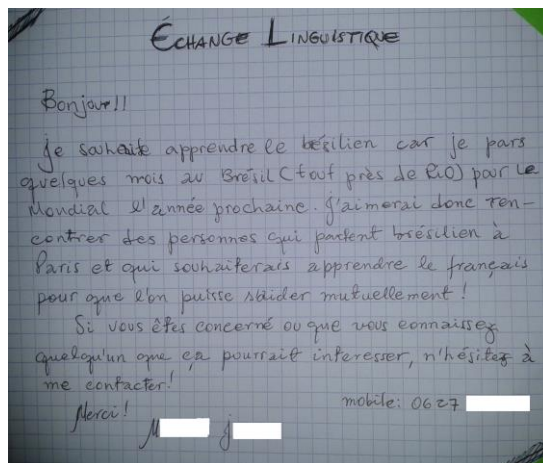 ÉCHANGE LINGUISTIQUE
Bonjour!!
Je souhaite apprendre le brésilien car je pars
quelques mois au Brésil (tout près de Rio) pour le
Mondial l'année prochaine. J'aimerai donc ren-
contrer des personnes qui parlent brésilien à
Paris et qui souhaiterais apprendre le français
pour que l'on puisse s'aider mutuellement!
Si vous êtes concerné ou que vous connaissez
quelqu'un que ça pourrait interesser, n'hésitez à
me contacter!
Merci!
mobile: 0627
M J